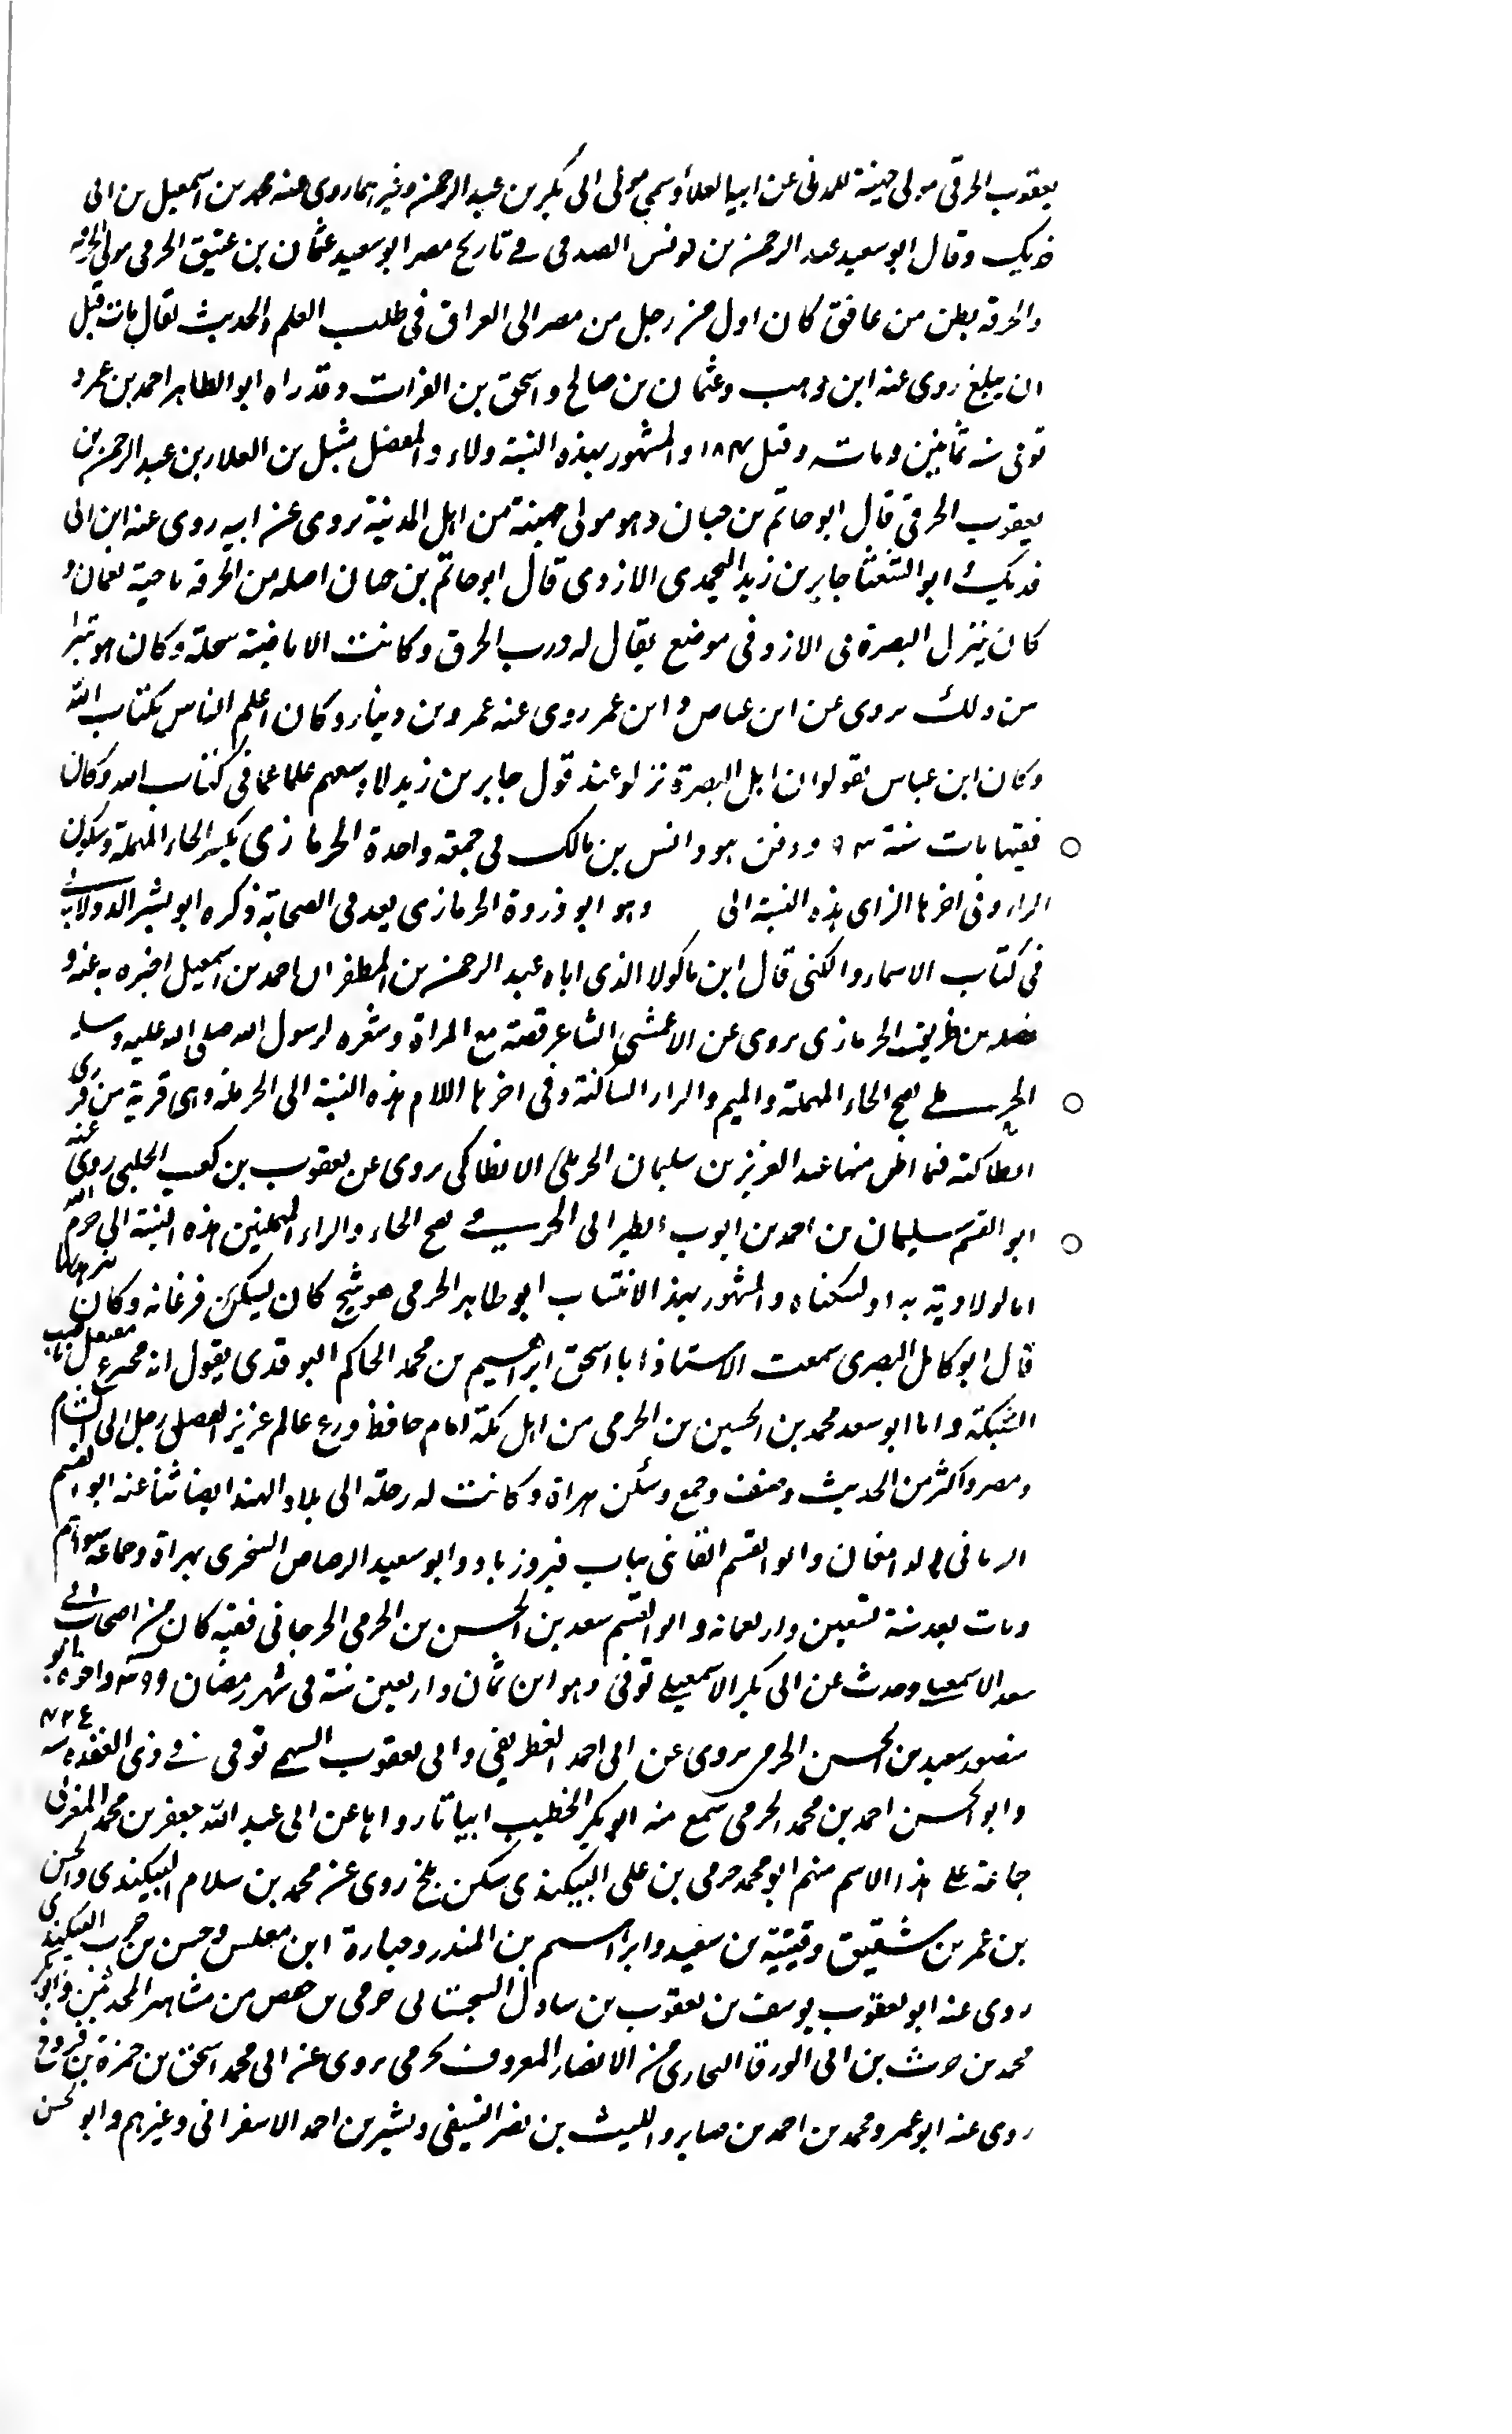 يعقوب الحرقى مولى جهينة المدنى عن ابيه العلاء وسمي مولى ابى بكر بن عبد الرحمن وغيرهما روى عنه محمد بن اسمعيل بن ابى
فديك وقال ابو سعيد عبد الرحمن بن يونس الصدفى فى تاريخ مصر ابو سعيد عثمان بن عتيق الحرقى مولى الحرقه
والحرقه بطن من غافق كان اول من رحل من مصر الى العراق فى طلب العلم والحديث يقال مات قبل
ان يبلغ روى عنه ابن وهب وعثمان بن صالح واسحق بن الفرات وقد راه ابو الطاهر احمد بن عمرو
توفى سنه ثمانين ومائه وقيل ١٨٤ والمشهور بهذه النسبة ولاء والمفضل شبل بن العلاء بن عبد الرحمن بن
يعقوب الحرقى قال ابو حاتم بن حبان وهو مولى جهينة من اهل المدينة يروى عن ابيه روى عنه ابن ابى
فديك وابو الشعثا جابر بن زيد اليحمدى الازدى قال ابو حاتم بن حبان اصله من الحرقه ناحية بعمان و
كان ينزل البصرة فى الازد فى موضع يقال له درب الحرق وكانت الاباضية تنتحله وكان هو تبرا
من ذلك يروى عن ابن عباس وابن عمر روى عنه عمرو بن دينار وكان اعلم الناس بكتاب الله
وكان ابن عباس يقول لو ان اهل البصرة نزلو عند قول جابر بن زيد لاوسعهم علما عما فى كتاب الله وكان
فقيها مات سنة ٩٣ ودفن هو وانس بن مالك فى جمعة واحدة الحرمازى بكسر الحاء المهملة وسكون
الراء وفى اخرها الزاى هذه النسبة الى وهو ابو ذروة الحرمازى يعد فى الصحابة ذكره ابو بشر الدولابى
فى كتاب الاسماء والكنى قال ابن ماكولا الذى اباه عبد الرحمن بن المظفر ان احمد بن اسمعيل اخبره به عنه و
نضله بن طريف الحرمازى يروى عن الاعشى الشاعر قصته مع المراة وشعره لرسول الله صلى الله عليه وسلم
الحرملى بفتح الحاء المهملة والميم والراء الساكنة وفى اخرها اللام هذه النسبة الى الحرملة وهى قرية من قرى
انطاكية فيما اظن منها عبد العزيز بن سليمان الحرملى الانطاكى يروى عن يعقوب بن كعب الحلبى روى عنه
ابو القسم سليمان بن احمد بن ايوب الطبرانى الحرمى بفتح الحاء والراء المهملتين هذه النسبة الى حرم الله
اما لولادته به او لسكناه والمشهور بهذا الانتساب ابو طاهر الحرمى هو شيخ كان يسكن فرغانه وكان
قال ابو كامل البصرى سمعت الاستاذ ابا اسحق ابراهيم بن محمد الحاكم البوقدى يقول انه
الشبكة واما ابو سعد محمد بن الحسين بن الحرمى من اهل مكة امام حافظ ورع عالم عزيز الفضل رحل الى الشام
ومصر واكثر من الحديث وصنف وجمع وسكن هراة وكانت له رحلة الى بلاد الهند ايضا ثنا عنه ابو القسم
الرمانى بالدامغان وابو القسم القاينى بباب فيروزباد وابو سعيد الرصاص السجزى بهراة وجماعة سواهم
ومات بعد سنة تسعين واربعمائه وابو القسم سعد بن الحسن بن الحرمى الجرجانى فقيه كان من اصحاب ابى
سعد الاسمعيلى وحدث عن ابى بكر الاسمعيلى توفى وهو ابن ثمان واربعين سنة فى شهر رمضان ٣٩٩ واخوه ابو
منصور سعيد بن الحسن الحرمى يروى عن ابى احمد الغطريفى وابى يعقوب السهمى توفى فى ذى القعده سنه
وابو الحسن احمد بن محمد الحرمى سمع منه ابو بكر الخطيب ابياتا رواها عن ابى عبد الله جعفر بن محمد المغربى
جماعة على هذا الاسم منهم ابو محمد حرمى بن على البيكندى سكن بلخ روى عن محمد بن سلام البيكندى والحسن
بن عمر بن شقيق وقتيبة بن سعيد وابراهيم بن المنذر وجبارة ابن مغلس وحسن بن حرب البيكندى
روى عنه ابو يعقوب يوسف بن يعقوب بن حرمى بن حفص من مشاهير المحدثين وابو بكر
محمد بن حرث بن ابى الورقا البخارى من الانصار المعروف بحرمى يروى عن ابى محمد اسحق بن حمزة بن فروخ
روى عنه ابو عمرو محمد بن احمد بن صابر والليث بن نصر النسفى وبشير بن احمد الاسفرانى وغيرهم وابو الحسن